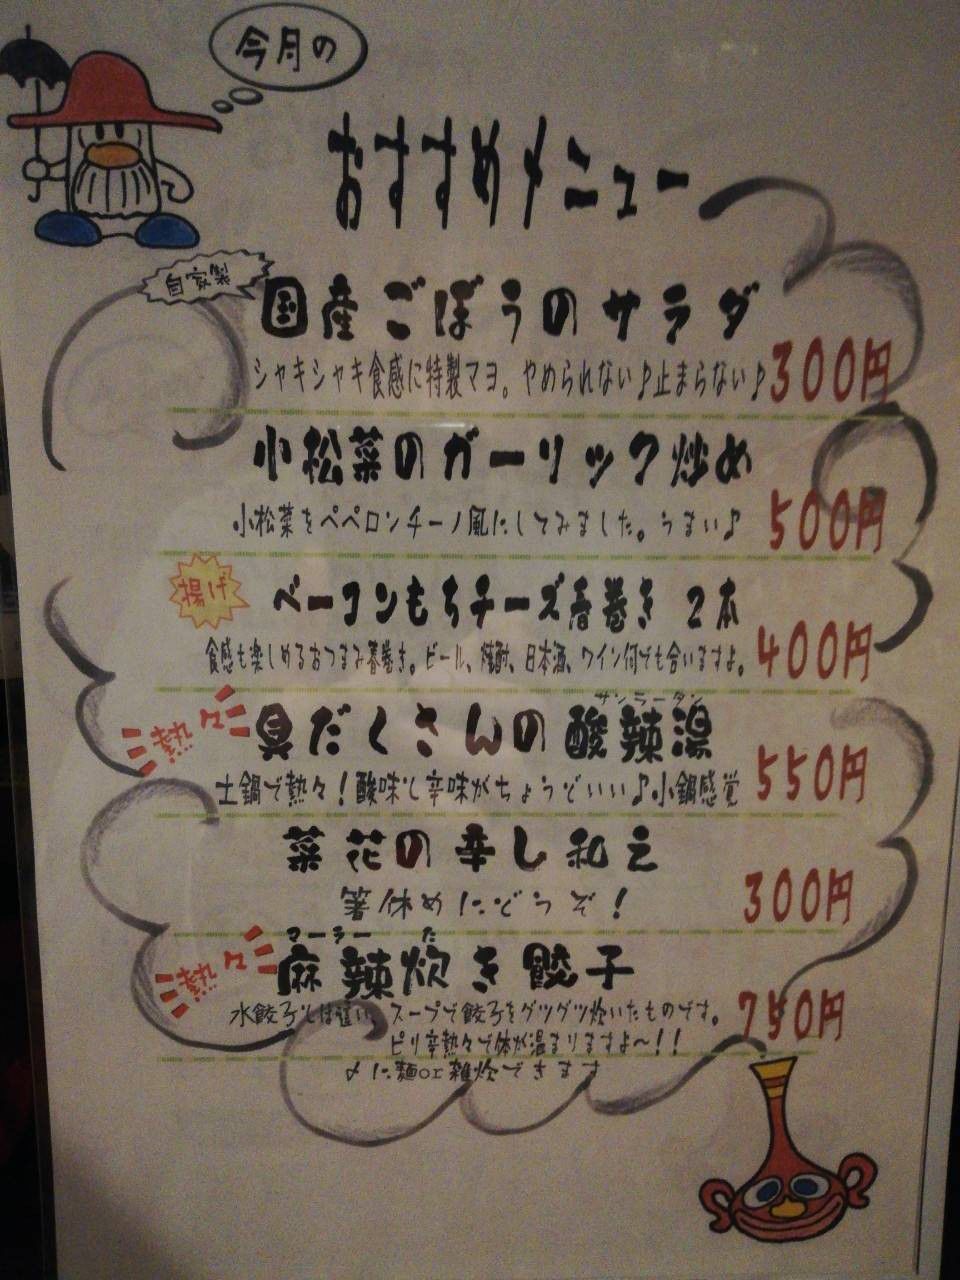 今月の
おすすめメニュー
自家製
国産ごぼうのサラダ
シャキシャキ食感に特製マヨ。やめられない♪止まらない♪
300円
小松菜のガーリック炒め
小松菜をペペロンチーノ風にしてみました。うまい♪
500円
揚げ
ベーコンもちチーズ春巻き 2本
食感も楽しめるおつまみ春巻き。ビール、焼酎、日本酒、ワイン何でも合いますよ。
400円
熱々
サンラータン
具だくさんの酸辣湯
土鍋で熱々!酸味と辛味がちょうどいい♪小鍋感覚
550円
菜花の辛し和え
箸休めにどうぞ!
300円
熱々
マーラー た
麻辣炊き餃子
水餃子とは違い、スープで餃子をグツグツ炊いたものです。
ピリ辛熱々で体が温まりますよ〜!!
〆に麺or雑炊できます
750円